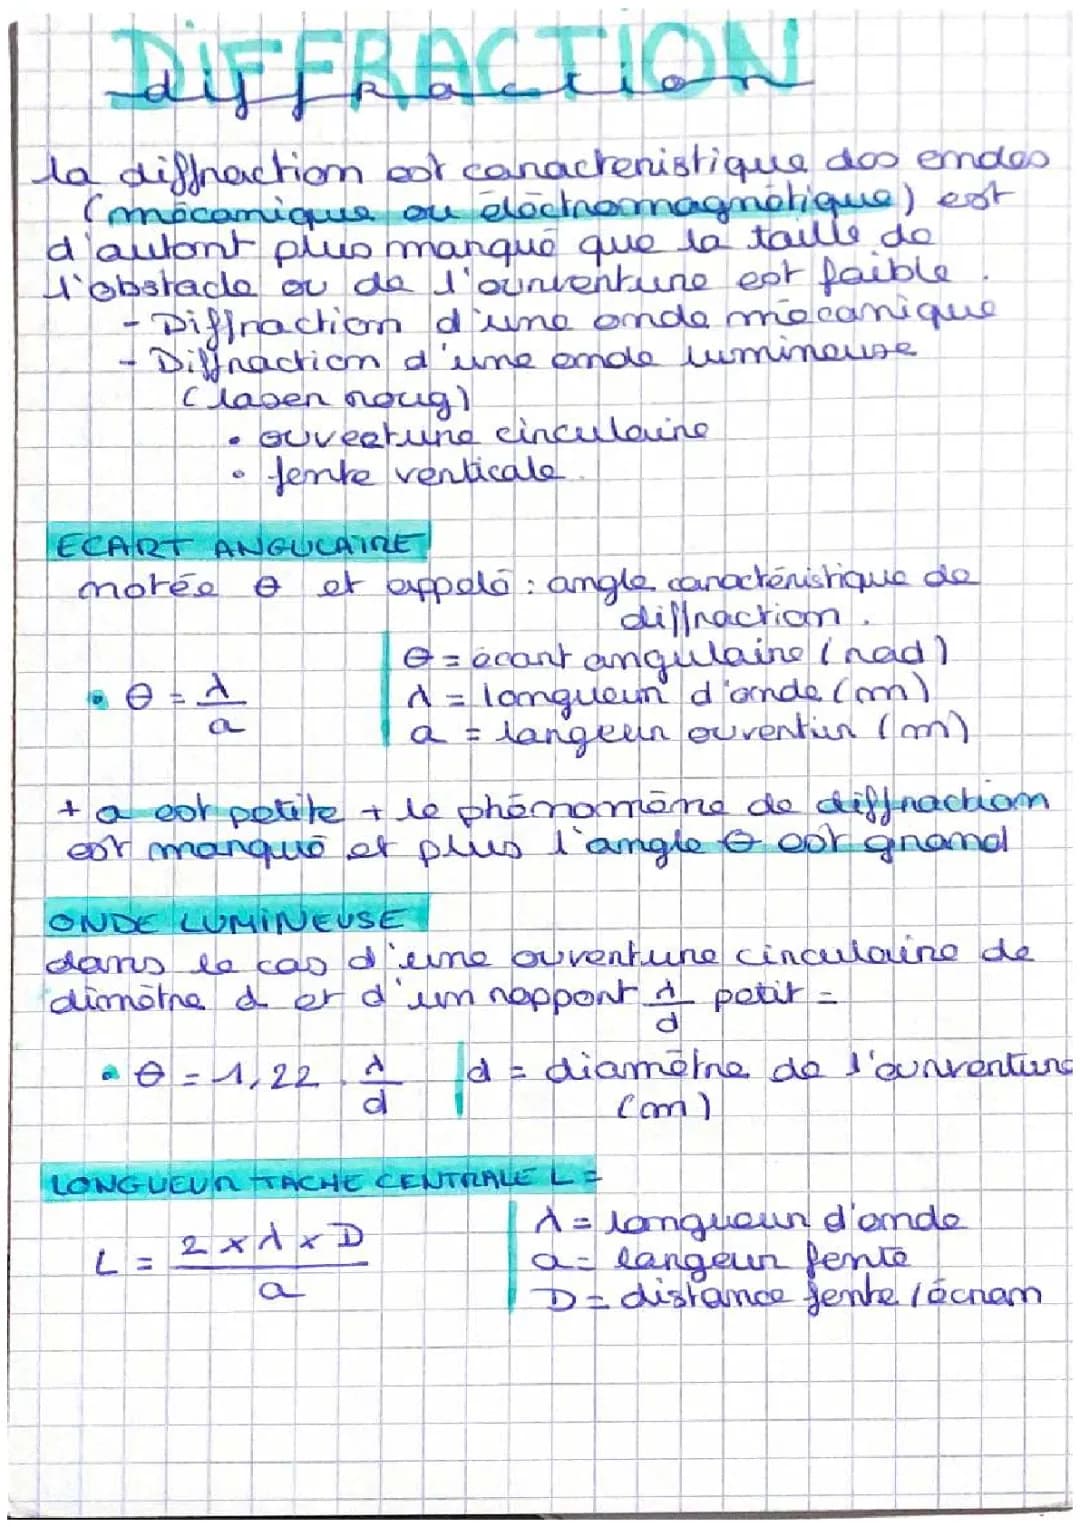 DIFFRACTION
diffraction
la diffraction est caractéristique des ondes
(mécanique ou électromagnétique) est
d'autant plus marqué que la taille de
l'obstacle ou de l'ouverture est faible.
- Diffraction d'une onde mécanique
- Diffraction d'une onde lumineuse
(laser roug)
• ouverture circulaire
• fente verticale.
ECART ANGULAIRE
notée θ et appelé : angle caractéristique de
diffraction.
θ = écart angulaire (rad)
• θ = λ/a
λ = longueur d'onde (m)
a = largeur ouvertur (m)
+ a est petite + le phénomène de diffraction
est marqué et plus l'angle θ est grand
ONDE LUMINEUSE
dans le cas d'une ouverture circulaire de
dimètre d et d'un rapport λ/d petit =
• θ = 1,22 λ/d
d = diamètre de l'ouverture
(m)
LONGUEUR TACHE CENTRALE L =
λ = longueur d'onde
L = 2 x λ x D / a
a = largeur fente
D = distance fente / écran